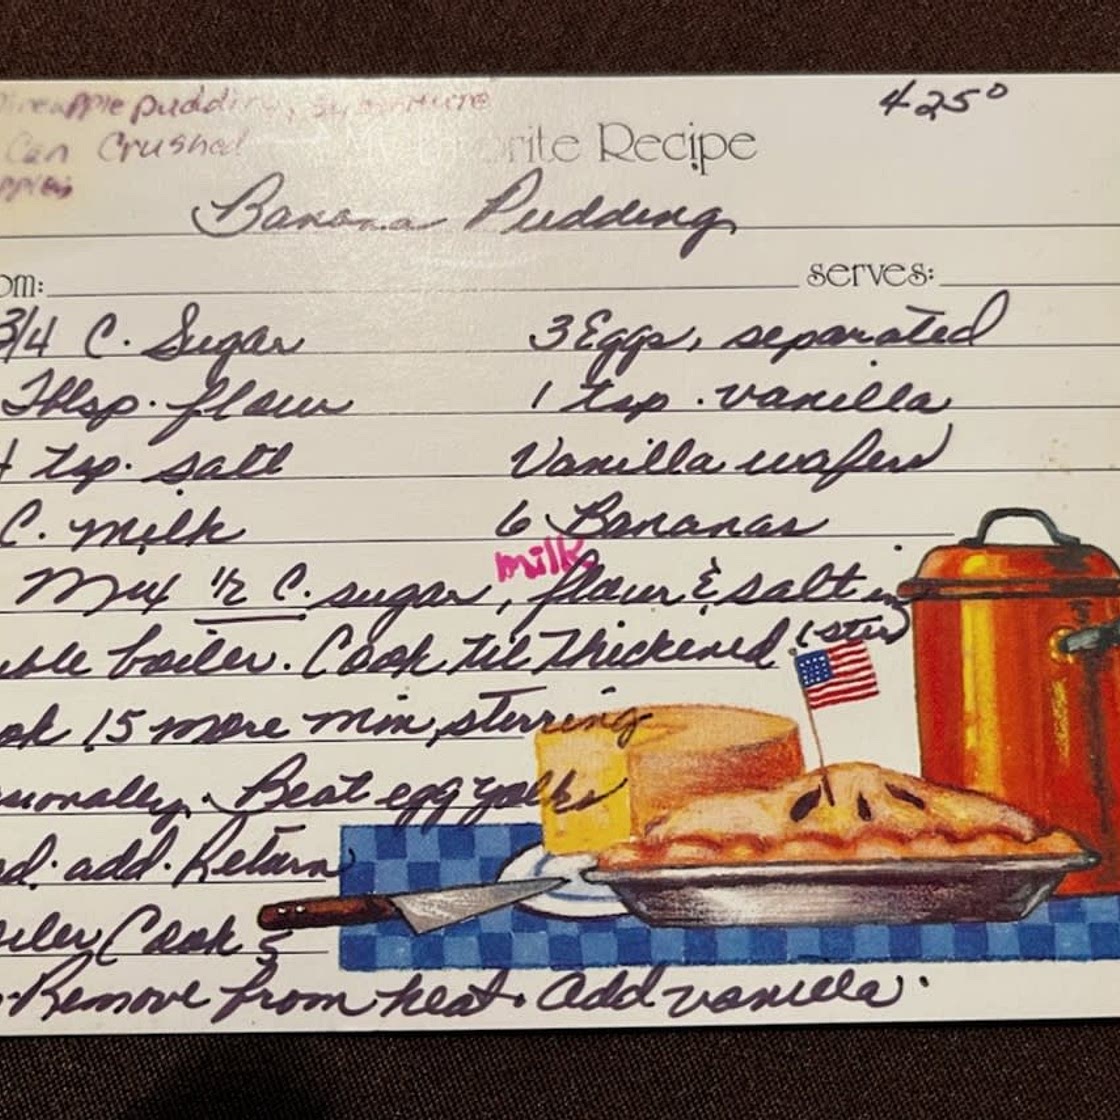 Pineapple pudding, substitute
Can Crushed
425°
orite Recipe
Banana Pudding
om: serves:
3/4 C. Sugar 3 Eggs, separated
Tblsp. flour 1 tsp. vanilla
tsp. salt Vanilla wafers
C. milk 6 Bananas
milk
Mix 1/2 C. sugar, flour & salt in
uble boiler. Cook til thickened (stir)
ok 15 more min, stirring
sionally. Beat egg yolks
add. Return
oiler Cook 5
Remove from heat. Add vanilla.